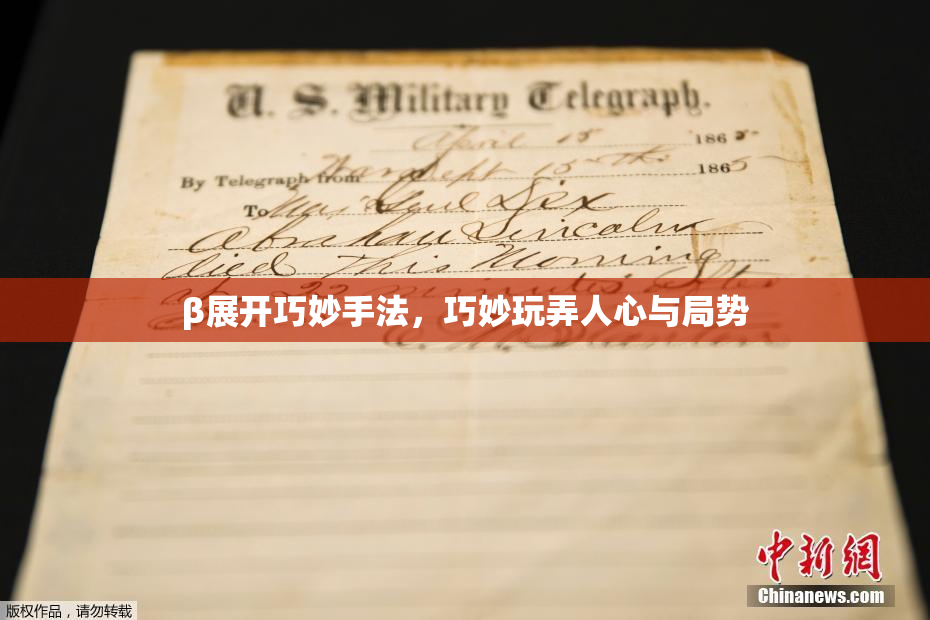 U. S. Military Telegraph.
April 15 1865
By Telegraph from War Dept 15th 1865
To Maj Genl Dix
Abraham Lincoln
died This Morning
at 22 minutes after
β展开巧妙手法，巧妙玩弄人心与局势
中新網
Chinanews.com
版权作品，请勿转载